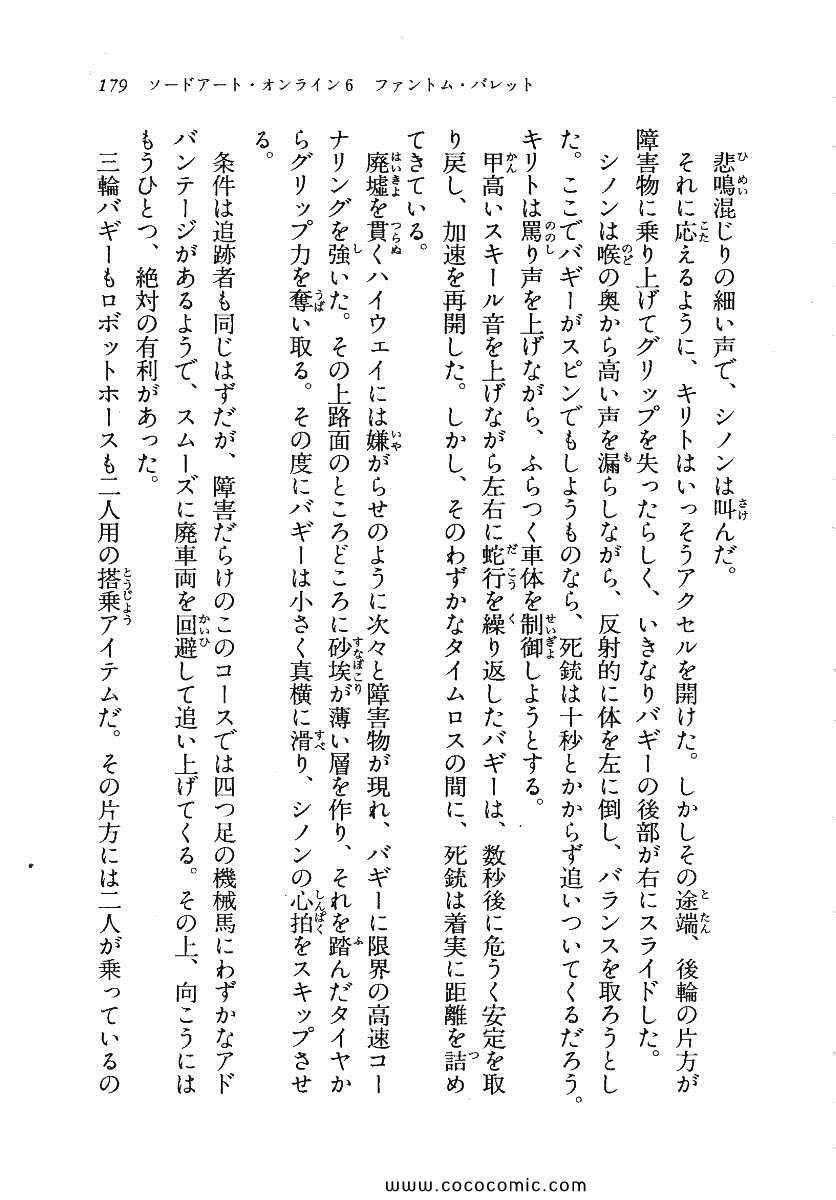 179 ソードアート・オンライン6 ファントム・バレット
悲鳴混じりの細い声で、シノンは叫んだ。
それに応えるように、キリトはいっそうアクセルを開けた。しかしその途端、後輪の片方が
障害物に乗り上げてグリップを失ったらしく、いきなりバギーの後部が右にスライドした。
シノンは喉の奥から高い声を漏らしながら、反射的に体を左に倒し、バランスを取ろうとし
た。ここでバギーがスピンでもしようものなら、死銃は十秒とかからず追いついてくるだろう。
キリトは罵り声を上げながら、ふらつく車体を制御しようとする。
甲高いスキール音を上げながら左右に蛇行を繰り返したバギーは、数秒後に危うく安定を取
り戻し、加速を再開した。しかし、そのわずかなタイムロスの間に、死銃は着実に距離を詰め
てきている。
廃墟を貫くハイウェイには嫌がらせのように次々と障害物が現れ、バギーに限界の高速コー
ナリングを強いた。その上路面のところどころに砂埃が薄い層を作り、それを踏んだタイヤか
らグリップ力を奪い取る。その度にバギーは小さく真横に滑り、シノンの心拍をスキップさせ
る。
条件は追跡者も同じはずだが、障害だらけのこのコースでは四つ足の機械馬にわずかなアド
バンテージがあるようで、スムーズに廃車両を回避して追い上げてくる。その上、向こうには
もうひとつ、絶対の有利があった。
三輪バギーもロボットホースも二人用の搭乗アイテムだ。その片方には二人が乗っているの
www.cococomic.com